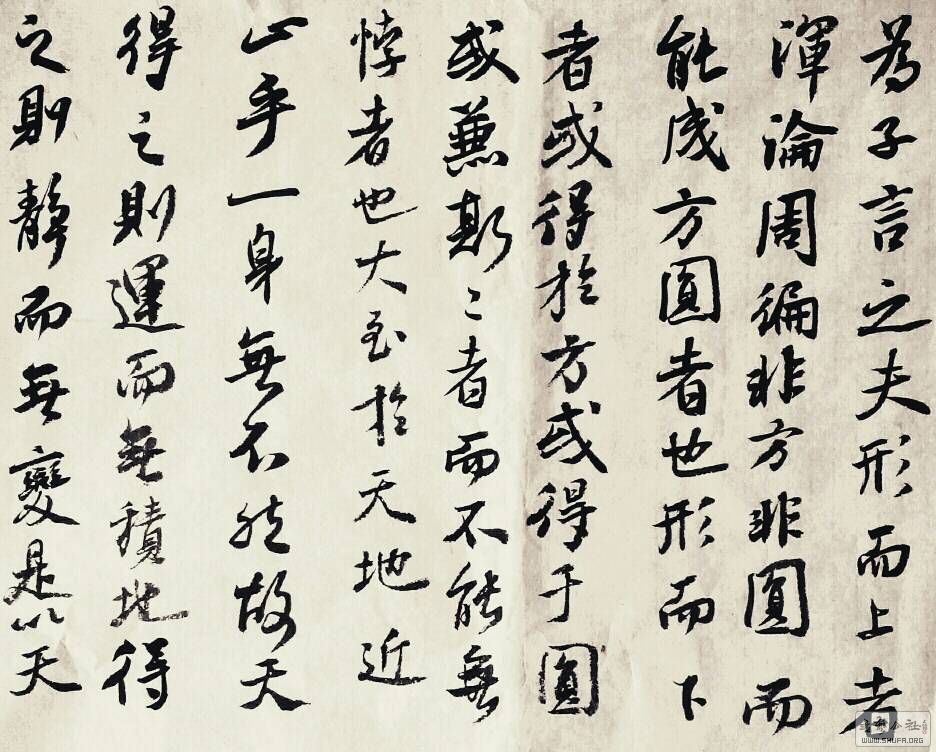 為子言之夫形而上者
渾淪周徧非方非圓而
能成方圓者也形而下
者或得於方或得于圓
或兼斯二者而不能無
悖者也大至於天地近
止乎一身無不然故天
得之則運而無積地得
之則靜而無變是以天
WWW.SHUFA.ORG